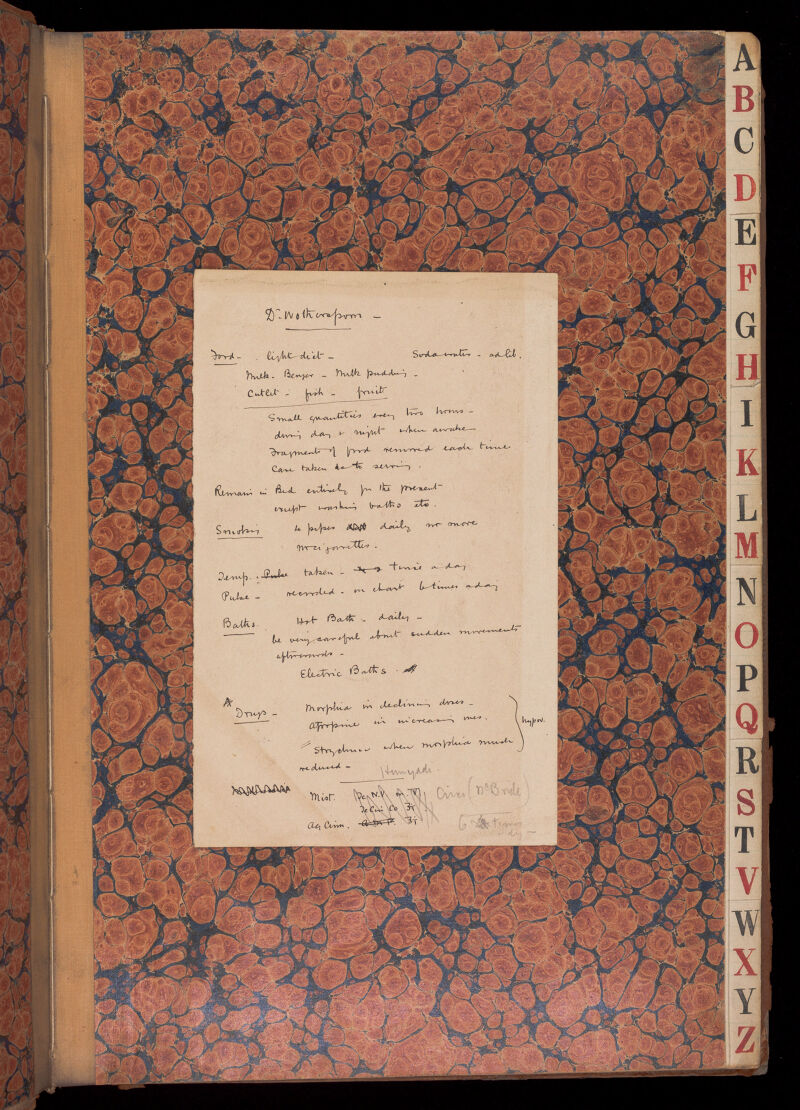 Dr Wotherspoon -
Food - . light diet - Soda water - ad lib.
Milk - Benger - Milk pudding -
Cutlet - fish - fruit
Small quantities every two hours -
during day & night when awake
Fragments of food removed each time
Care taken as to serving.
Remain in Bed entirely for the present
except washing baths etc.
Smoking 4 pipes daily no more
no cigarettes.
Temp. Pulse taken - twice a day
Pulse - recorded - on chart 6 times a day
Baths Hot Bath - daily -
be very careful about sudden movements
afterwards -
Electric Baths.
Drugs - Morphia in declining doses -
Atropine in increasing ones. hypod.
Strychnine when morphia much
reduced -
Mist.
(McBride)
Aq Cinn.
6 times
A
B
C
D
E
F
G
H
I
K
L
M
N
O
P
Q
R
S
T
V
W
X
Y
Z